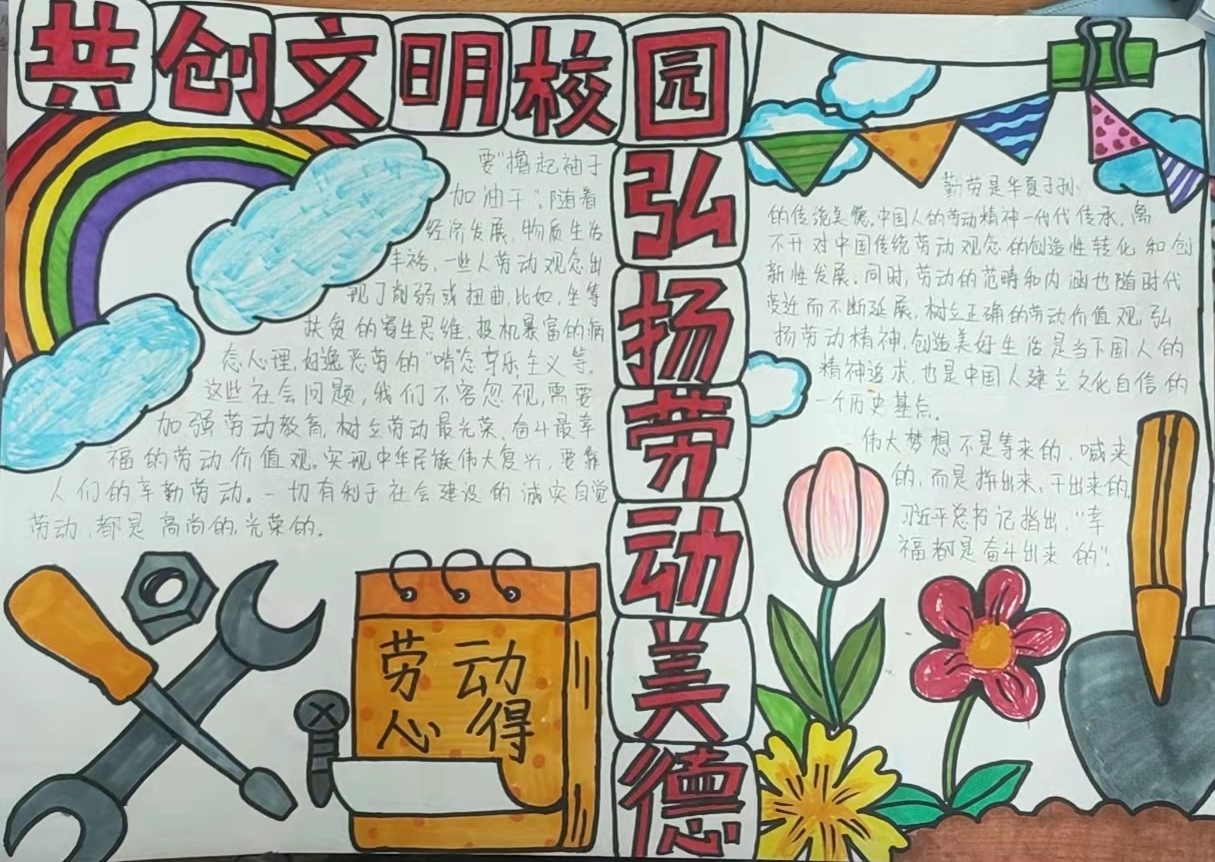 共创文明校园
弘扬劳动美德
要“撸起袖子
加油干”。随着
经济发展,物质生活
丰裕,一些人劳动观念出
现了削弱或扭曲,比如,坐等
扶贫的寄生思维,投机暴富的病
态心理,好逸恶劳的“啃”念享乐主义等。
这些社会问题,我们不容忽视,需要
加强劳动教育,树立劳动最光荣、奋斗最幸
福的劳动价值观。实现中华民族伟大复兴,要靠
人们的辛勤劳动。一切有利于社会建设的诚实自觉
劳动,都是高尚的,光荣的。
劳动
心得
勤劳是华夏子孙
的传统美德,中国人的劳动精神一代代传承,离
不开对中国传统劳动观念的创造性转化和创
新性发展。同时,劳动的范畴和内涵也随时代
变迁而不断延展,树立正确的劳动价值观,弘
扬劳动精神,创造美好生活是当下国人的
精神追求,也是中国人建立文化自信的
一个历史基点。
伟大梦想不是等来的,喊来
的,而是拼出来、干出来的,
习近平总书记指出,“幸
福都是奋斗出来的”!